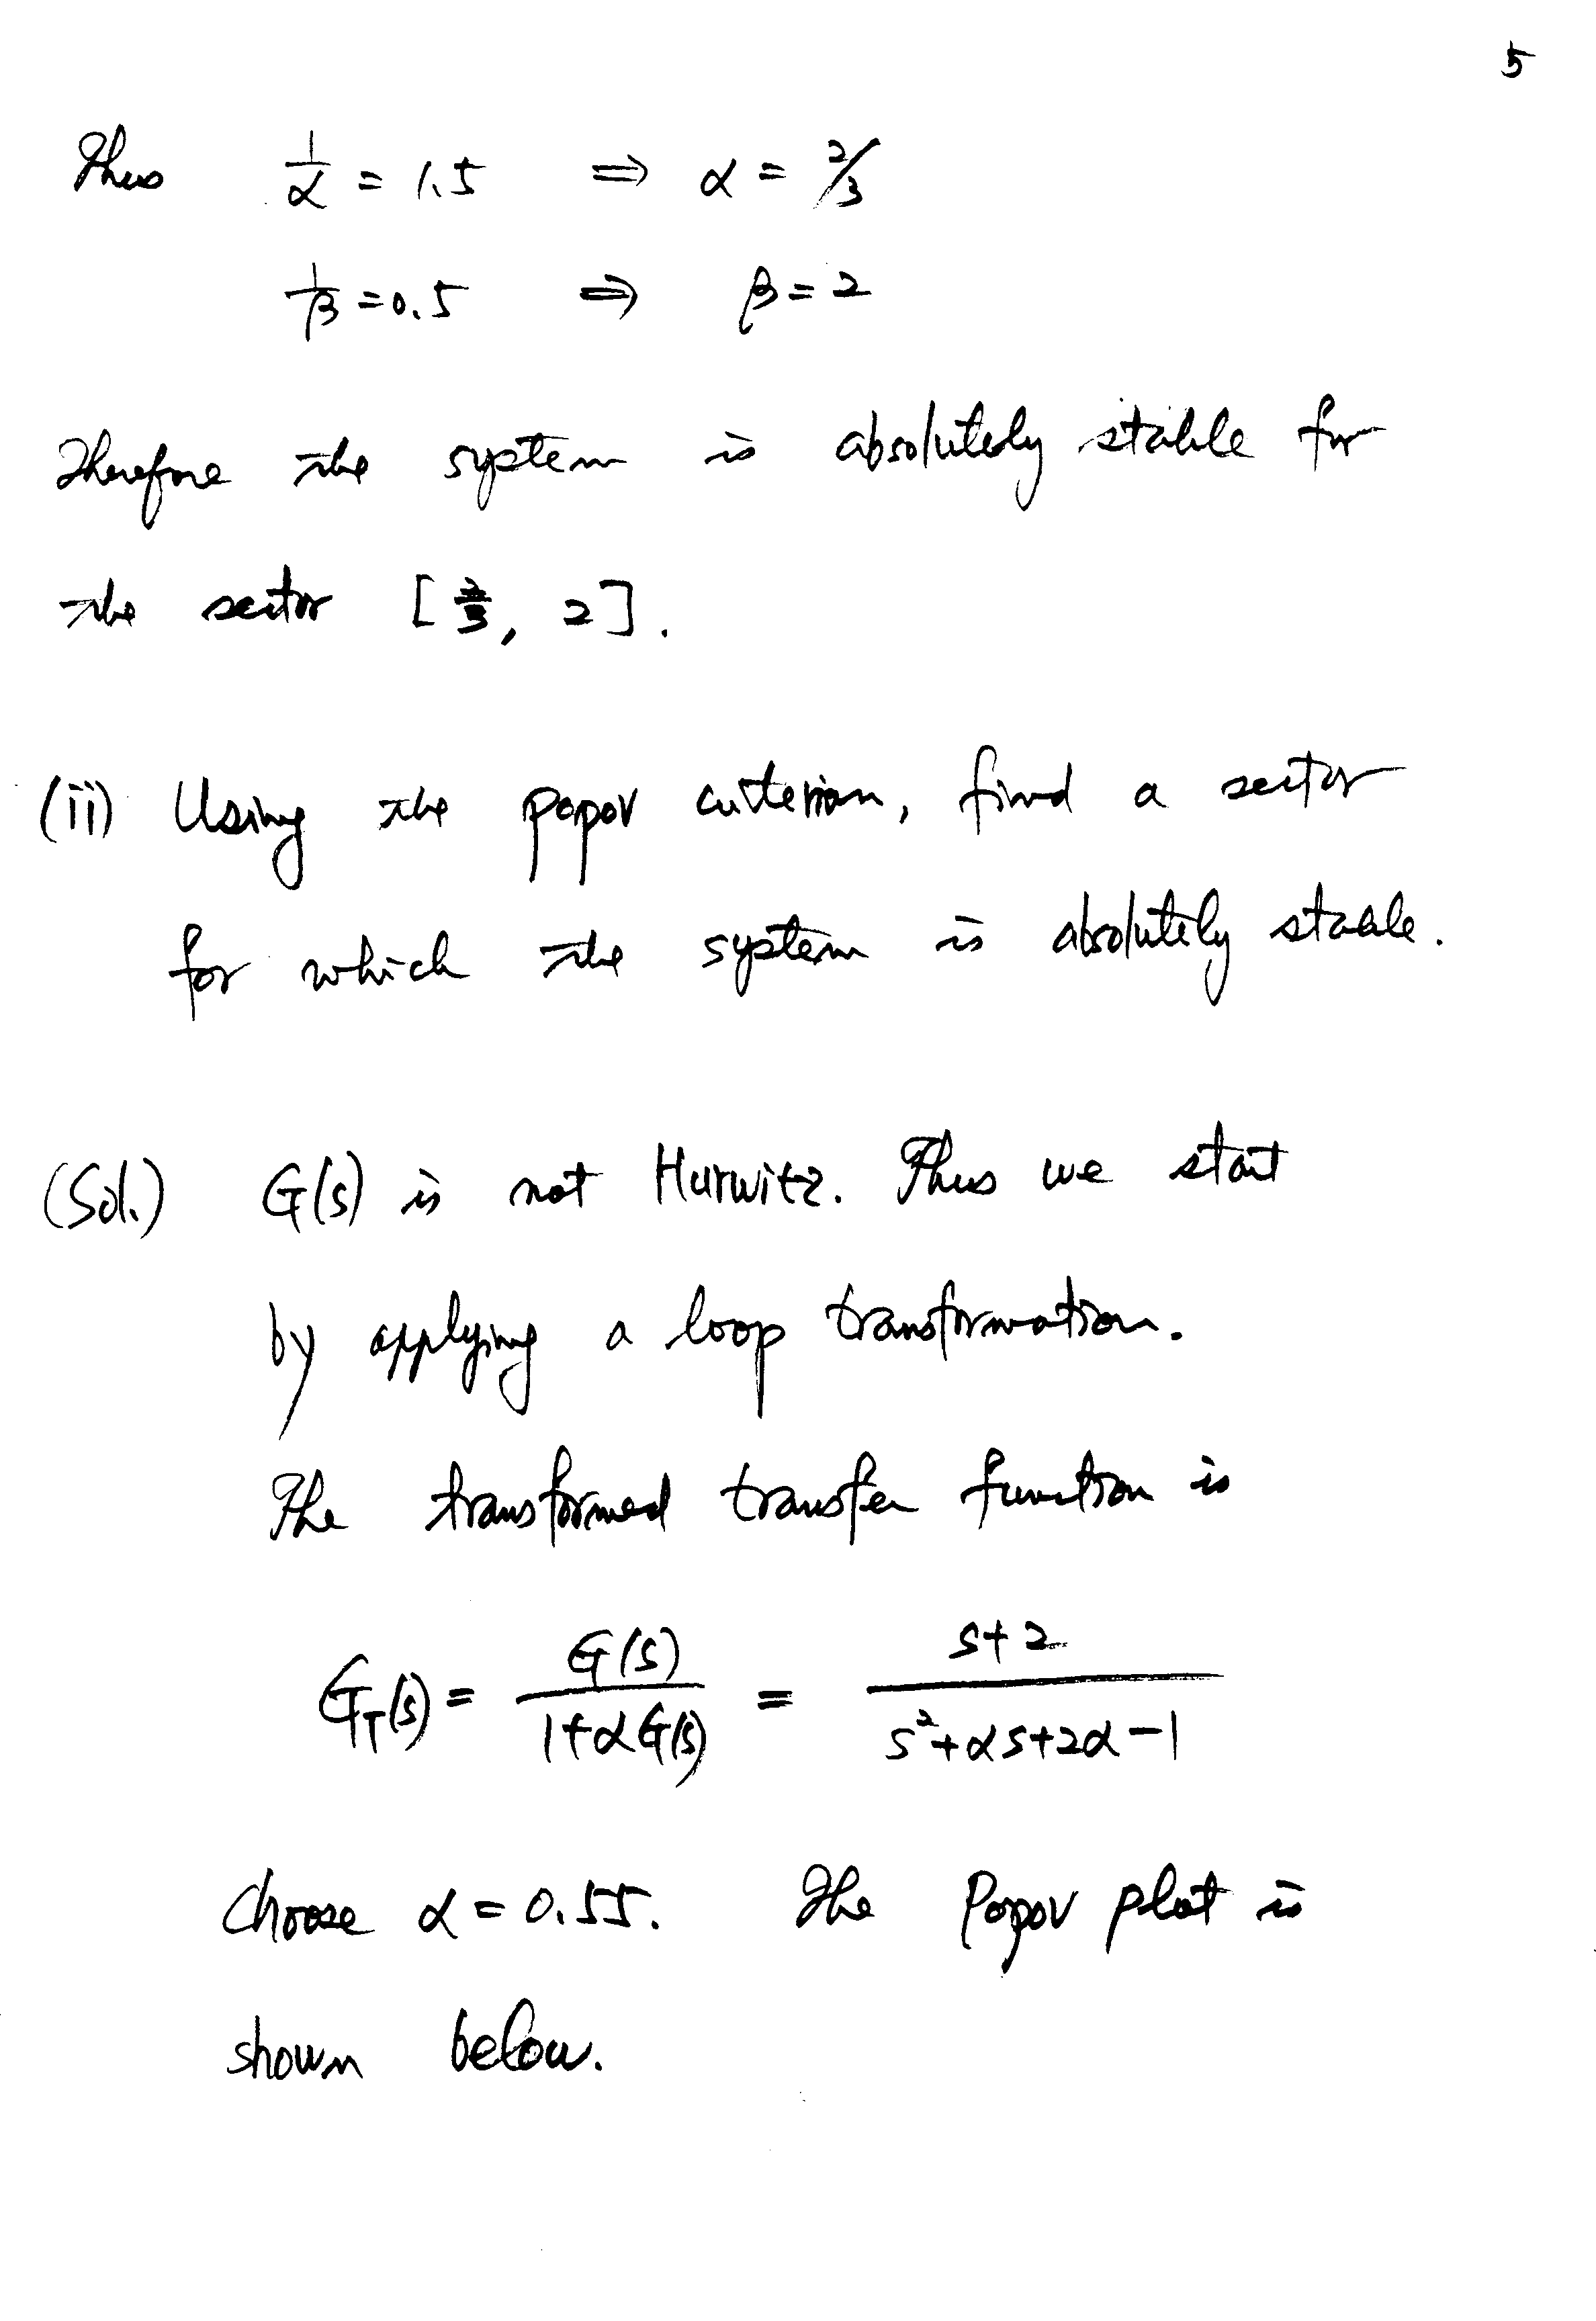 5
Thus 1/α = 1.5 ⇒ α = 2/3
1/β = 0.5 ⇒ β = 2
Therefore the system is absolutely stable for
the sector [2/3, 2].
(ii) Using the popov criterion, find a sector
for which the system is absolutely stable.
(Sol.) G(s) is not Hurwitz. Thus we start
by applying a loop transformation.
The transformed transfer function is
G_T(s) = G(s)/(1+αG(s)) = (s+2)/(s²+αs+2α-1)
Choose α = 0.55. The Popov plot is
shown below.